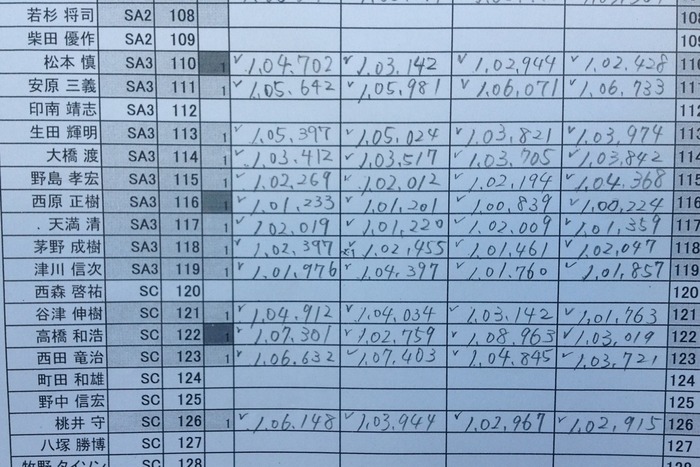 若杉 将司 SA2 108 108
柴田 優作 SA2 109 109
松本 慎 SA3 110 1 1,04.702 1,03.142 1,02,944 1,02.428 110
安原 三義 SA3 111 1 1,05.642 1,05,981 1,06,071 1,06,733 111
印南 靖志 SA3 112 112
生田 輝明 SA3 113 1 1,05.397 1,05,024 1,03,821 1,03,974 113
大橋 渡 SA3 114 1 1,03.412 1,03,517 1,03,705 1,03,842 114
野島 孝宏 SA3 115 1 1,02,269 1,02,012 1,02,194 1,04,368 115
西原 正樹 SA3 116 1 1,01,233 1,01,201 1,00,839 1,00,224 116
.天満 清 SA3 117 1 1,02,019 1,01,220 1,02,009 1,01,359 117
茅野 成樹 SA3 118 1 1,02,397 1,02,455 1,01,461 1,02,047 118
津川 信次 SA3 119 1 1,01,976 1,04,397 1,01,760 1,01,857 119
西森 啓祐 SC 120 120
谷津 伸樹 SC 121 1 1,04,912 1,04,034 1,03,142 1,01,763 121
高橋 和浩 SC 122 1 1,07.301 1,02,759 1,08,963 1,03,019 122
西田 竜治 SC 123 1 1,06.632 1,07,403 1,04,845 1,03,721 123
町田 和雄 SC 124 124
野中 信宏 SC 125 125
桃井 守 SC 126 1 1,06.148 1,03,944 1,02,967 1,02,915 126
八塚 勝博 SC 127 127
牧野 タイソン SC 128